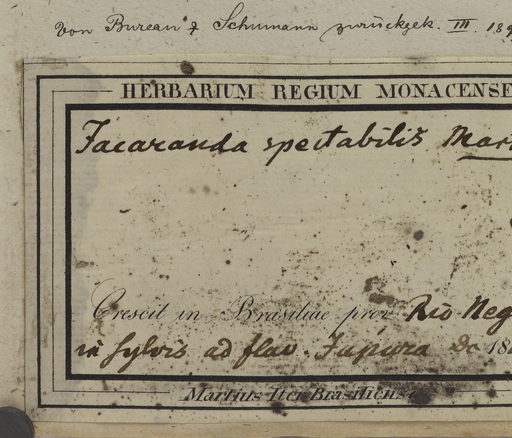 Von Bureau & Schumann zurückgek. III. 189
HERBARIUM REGIUM MONACENSE
Jacaranda spectabilis Mart
Crescit in Brasiliae prov Rio Neg
in sylvis ad fluv. Japura Dc 18
Martius Iter Brasiliens